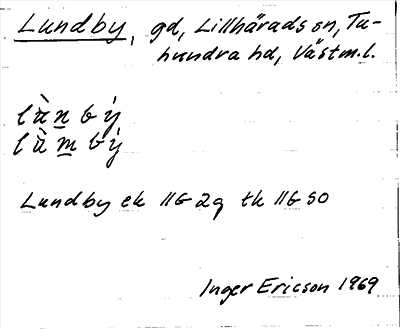 Lundby, gd, Lillhärads sn, Tu-
hundra hd, Västm.l.
lùn bý
lùm bý
Lundby ek 11G 2g tk 11G SO
Inger Ericson 1969